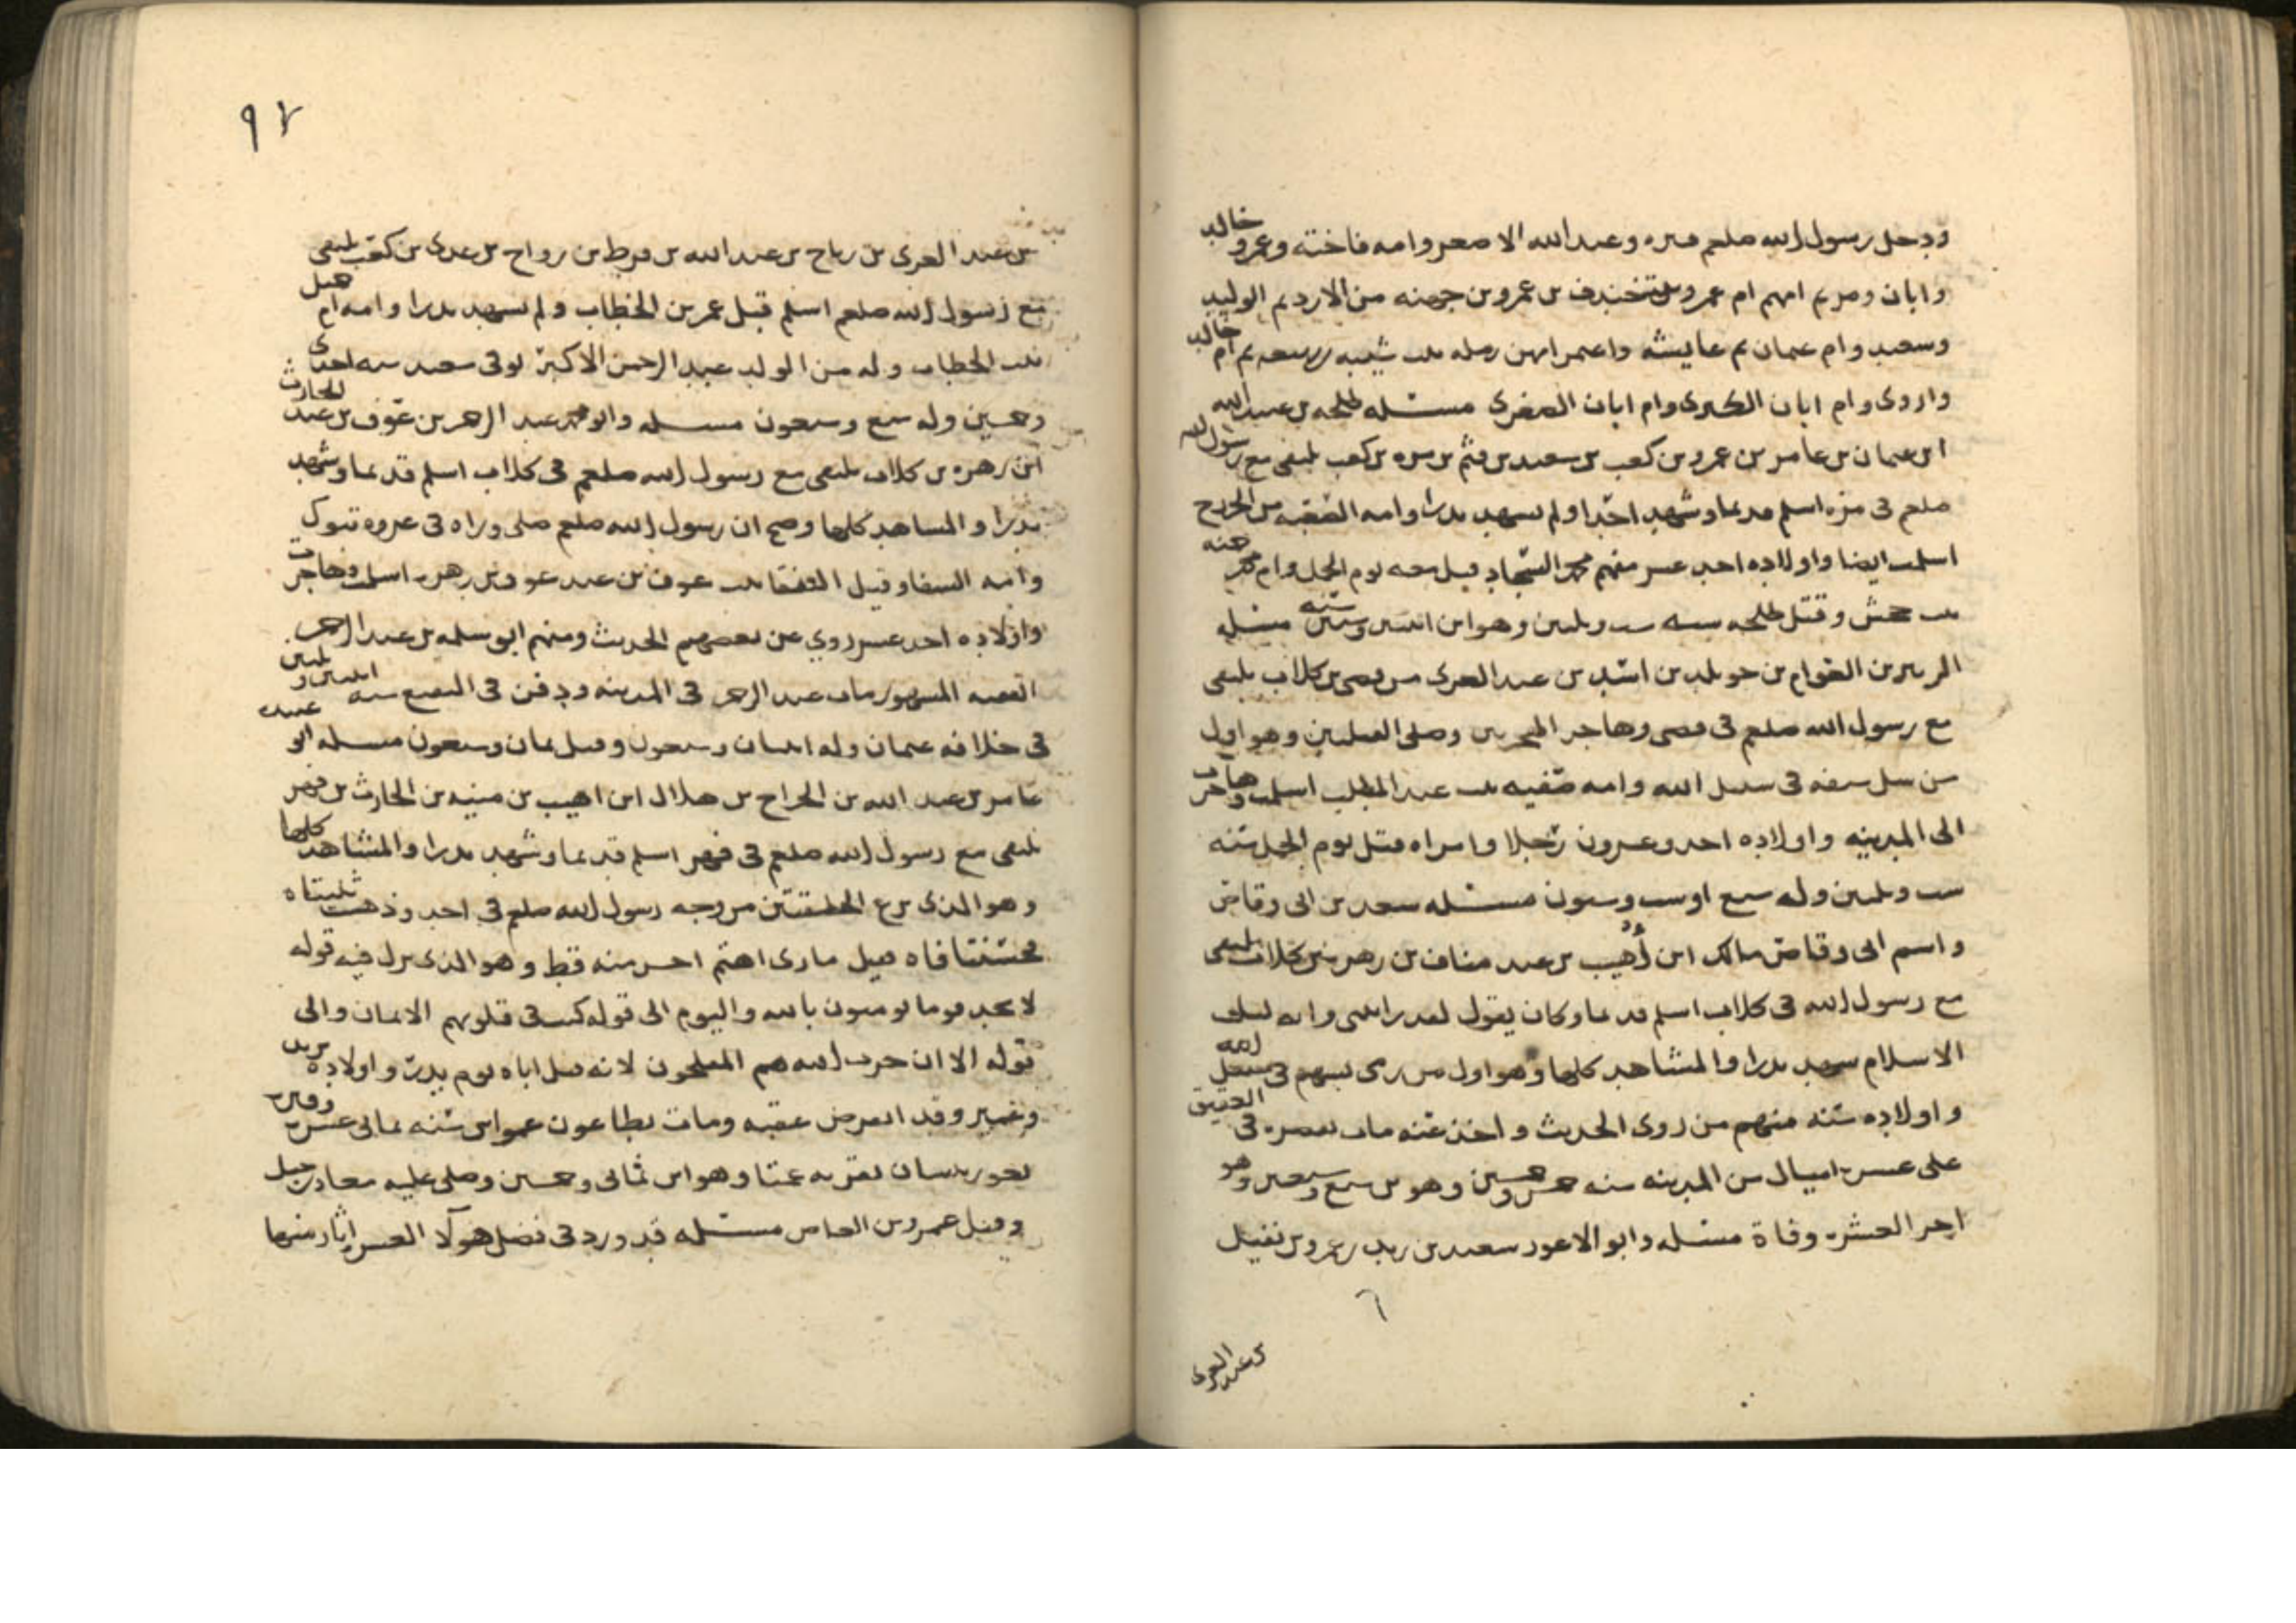 ودخل رسول الله صلعم قبره وعبد الله الاصغر وامه فاخته وعمرو خالد
وابان ومريم امهم ام عمرو بنت جندب بن عمرو بن من الازد ثم الوليد
وسعيد وام عثمان ثم عايشه وامهن رمله بنت شيبه بن ربيعه ثم ام خالد
واروى وام ابان الكبرى وام ابان الصغرى مسئله طلحه بن عبيد الله
ابن عثمان بن عامر بن عمرو بن كعب بن سعيد بن تيم بن مره بن كعب يلتقى مع رسول الله
صلعم فى مره اسلم قديما وشهد احدا ولم يشهد بدرا وامه
اسلمت ايضا واولاده احد عشر منهم محمد السجاد قتل معه يوم الجمل وام محمد حمنه
بنت جحش وقتل طلحه سنه ست وثلثين وهو ابن اثنتين وستين سنه مسئله
الزبير بن العوام بن خويلد بن اسد بن عبد العزى بن قصى بن كلاب يلتقى
مع رسول الله صلعم فى قصى وهاجر الهجرتين وصلى القبلتين وهو اول
من سل سيفه فى سبيل الله وامه صفيه بنت عبد المطلب اسلمت وهاجرت
الى المدينه واولاده احد وعشرون رجلا وامراه قتل يوم الجمل سنه
ست وثلثين وله سبع او ست وستون مسئله سعد بن ابى وقاص
واسم ابى وقاص مالك ابن أهيب بن عبد مناف بن زهره بن كلاب يلتقى
مع رسول الله فى كلاب اسلم قديما وكان يقول لقد رايتنى وانه لثلث
الاسلام شهد بدرا والمشاهد كلها وهو اول من رمى بسهم فى سبيل الله
واولاده سته منهم من روى الحديث واخذ عنه مات بقصره فى العقيق
على عشره اميال من المدينه سنه خمس وخمسين وهو بن سبع وسبعين وهو
اخر العشره وفاة مسئله وابو الاعور سعيد بن زيد بن عمرو بن نفيل
٦
بن عبد العزى
٩٧
بن عبد العزى بن رياح بن عبد الله بن قرط بن رواح بن عدى بن كعب يلتقى
مع رسول الله صلعم اسلم قبل عمر بن الخطاب ولم يشهد بدرا وامه ام جميل
بنت الخطاب وله من الولد عبد الرحمن الاكبر توفى سعيد سنه احدى
وخمسين وله سبع وسبعون مسئله وابو محمد عبد الرحمن بن عوف بن عبد الحارث
ابن زهره بن كلاب يلتقى مع رسول الله صلعم فى كلاب اسلم قديما وشهد
بدرا والمشاهد كلها وصح ان رسول الله صلعم صلى وراه فى غزوه تبوك
وامه الشفا وقيل بنت عوف بن عبد عوف بن زهره اسلمت وهاجرت
واولاده احد عشر روي عن بعضهم الحديث ومنهم ابو سلمه بن عبد الرحمن
الفقيه المشهور مات عبد الرحمن فى المدينه ودفن فى البقيع سنه اثنتين وثلثين
فى خلافه عثمان وله اثنتان وسبعون وقيل ثمان وسبعون مسئله ابو عبيده
عامر بن عبد الله بن الجراح بن هلال ابن اهيب بن منبه بن الحارث بن فهر
يلتقى مع رسول الله صلعم فى فهر اسلم قديما وشهد بدرا والمشاهد كلها
وهو الذى نزع الحلقتين من وجه رسول الله صلعم فى احد وذهبت ثنيتاه
فحسنتا فاه فقيل ما رى اهتم احسن منه قط وهو الذى نزل فيه قوله
لا تجد قوما يومنون بالله واليوم الى قوله كتب فى قلوبهم الايمان والى
قوله الا ان حزب الله هم المفلحون لانه قتل اباه يوم بدر واولاده يزيد
وعمير وقد انقرض عقبه ومات بطاعون عمواس سنه ثمانى عشره وقبره
بغور بيسان بقريه عمتا وهو ابن ثمانى وخمسين وصلى عليه معاذ بن جبل
وقيل عمرو بن العاص مسئله قد ورد فى فضل هولا العشره اثار منها